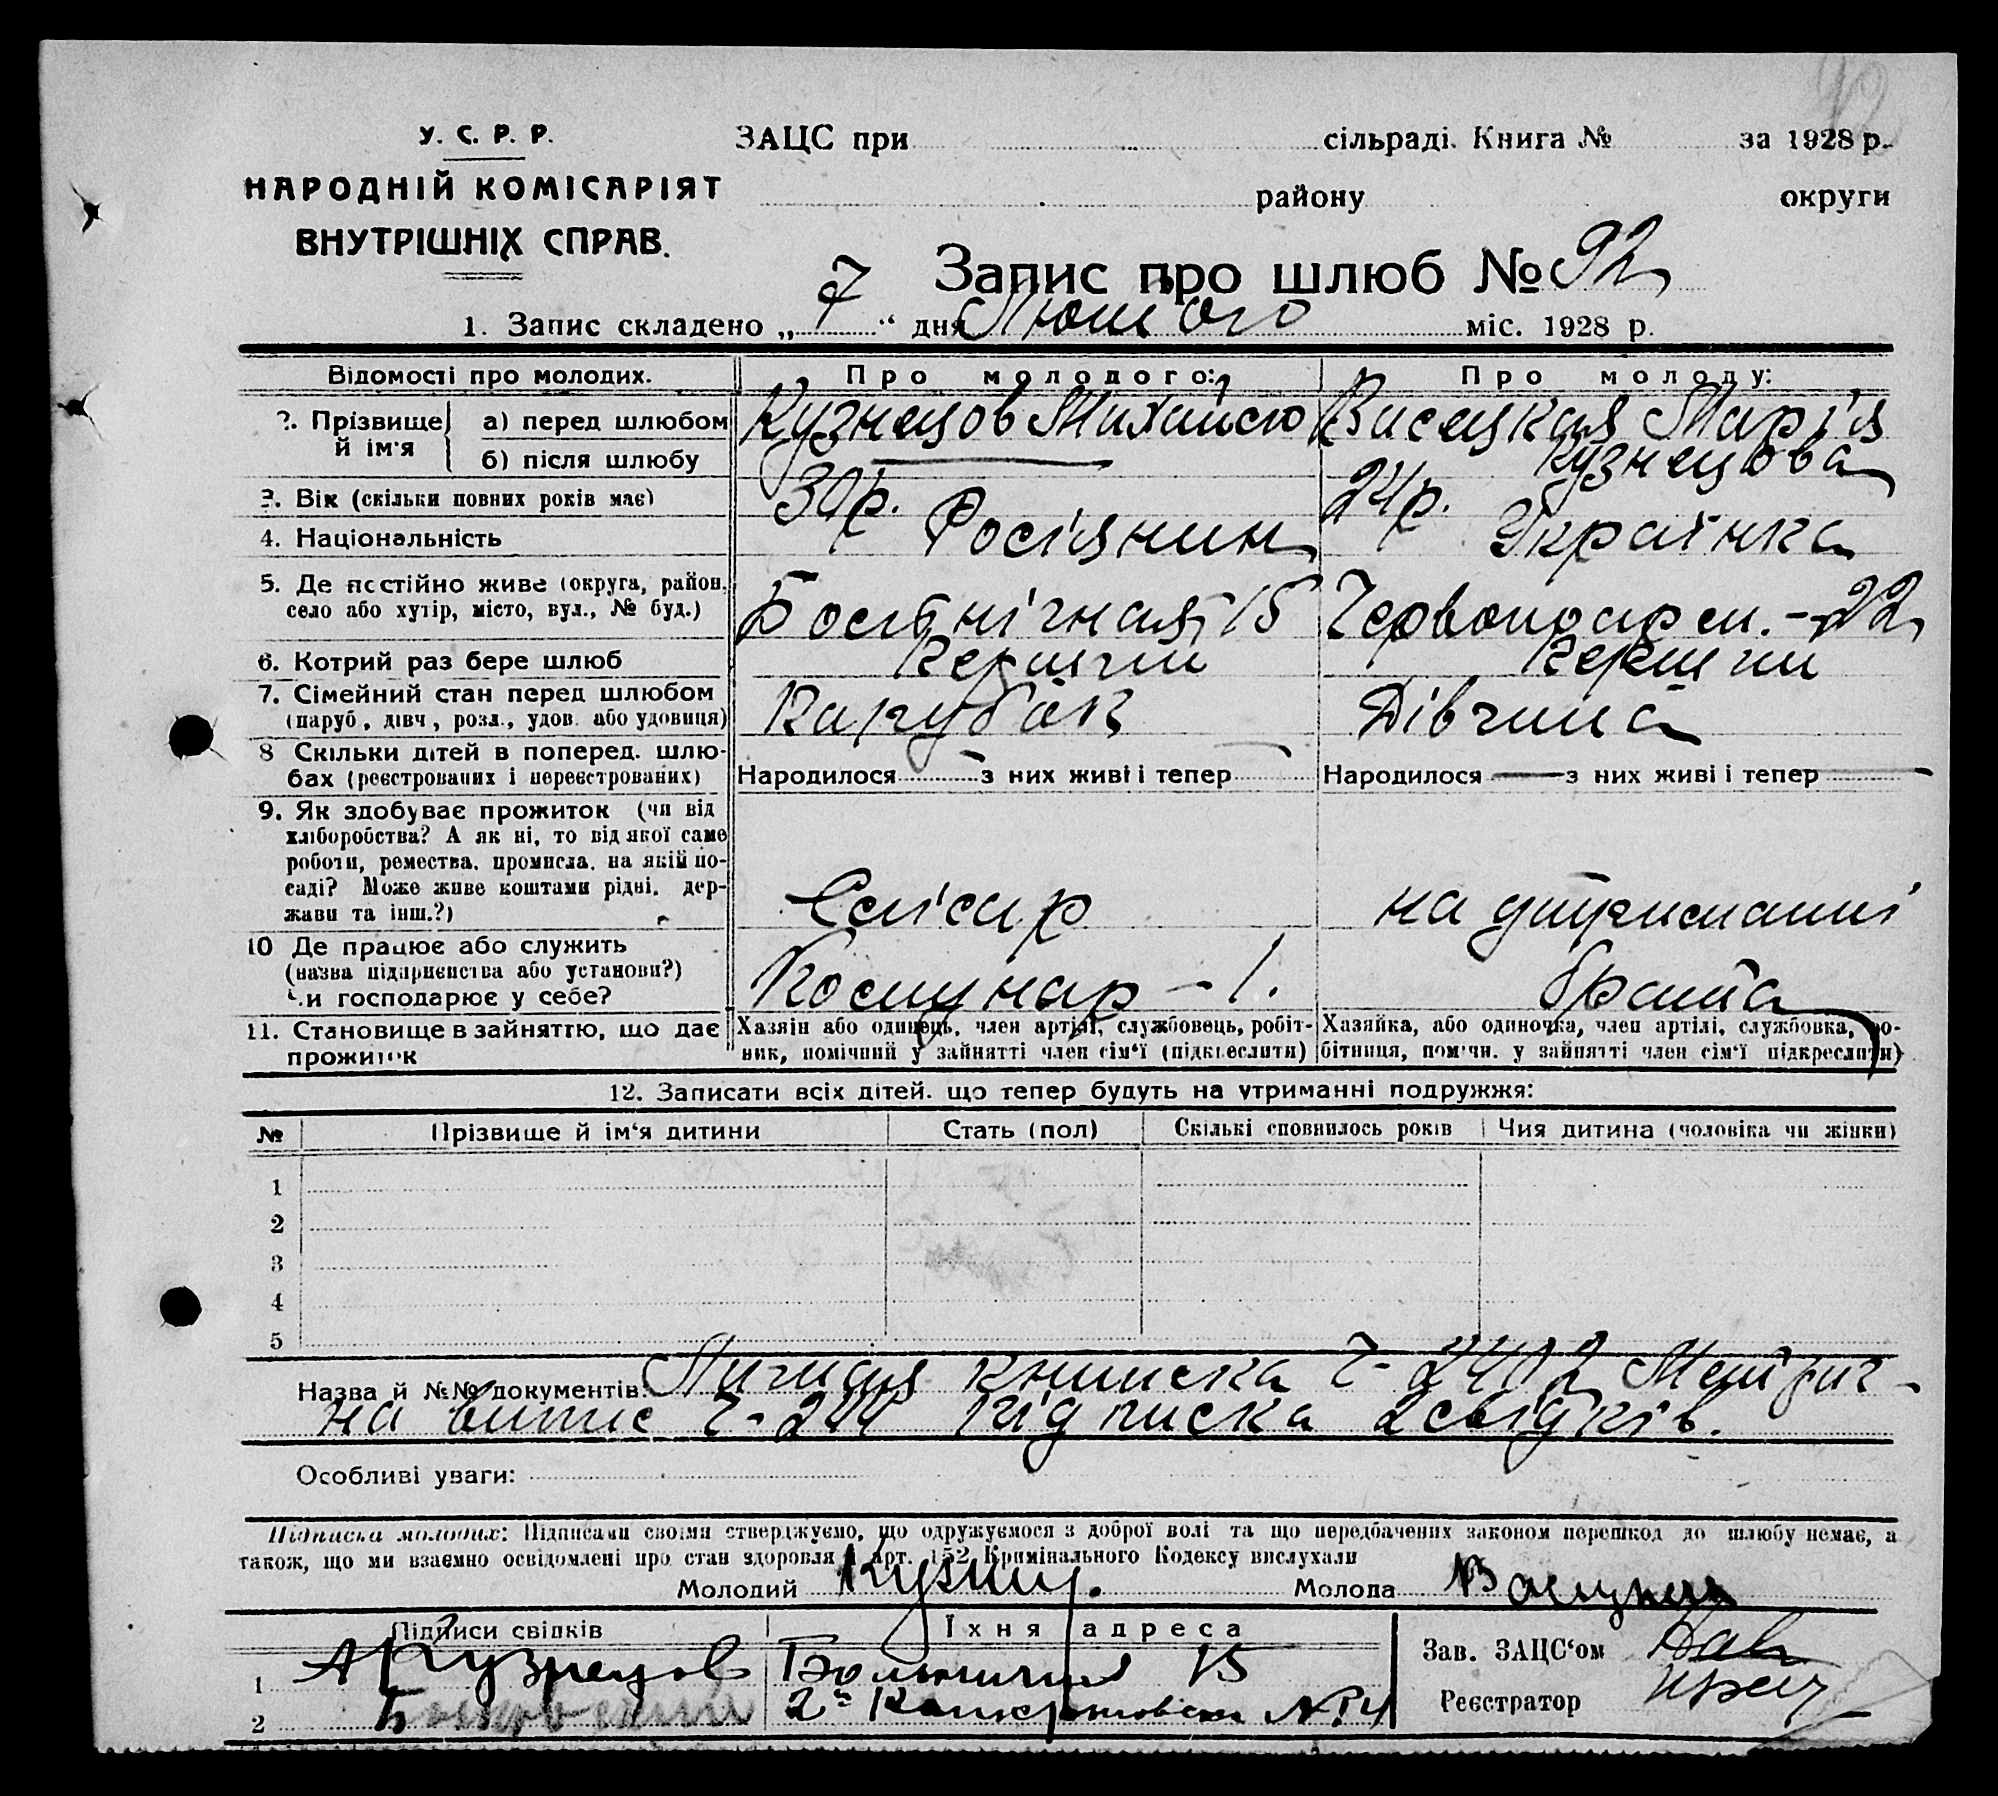 92
У. С. Р. Р.
НАРОДНІЙ КОМІСАРІЯТ
ВНУТРІШНІХ СПРАВ.
ЗАЦС при сільраді. Книга № за 1928 р.
району округи
Запис про шлюб № 92
1. Запис складено „ 7 “ дня Лютого міс. 1928 р.
Відомості про молодих. Про молодого: Про молоду:
2. Прізвище й ім'я а) перед шлюбом Кузнецов Михайло Висецкая Марія
б) після шлюбу Кузнецова
3. Вік (скільки повних років має) 30 р. 24 р.
4. Національність Росіянин Українка
5. Де постійно живе (округа, район, село або хутір, місто, вул., № буд.) 15 Червоноарм. - 22
6. Котрий раз бере шлюб Перший Перший
7. Сімейний стан перед шлюбом (паруб., дівч., розл., удов. або удовиця) Парубок Дівчина
8 Скільки дітей в поперед. шлюбах (реєстрованих і нереєстрованих) Народилося — з них живі і тепер — Народилося — з них живі і тепер —
9. Як здобуває прожиток (чи від хліборобства? А як ні, то від якої саме роботи, ремества, промисла, на якій посаді? Може живе коштами рідні, держави та інш.?) Слісар на утриманні
10 Де працює або служить (назва підприєнства або установи?) Чи господарює у себе? Комунар - 1. брата
11. Становище в зайняттю, що дає прожиток Хазяїн або одинець, член артілі, службовець, робітник, помічний у зайнятті член сім'ї (підкреслити) Хазяйка, або одиночка, член артілі, службовка, робітниця, помічн. у зайнятті член сім'ї підкреслити)
12. Записати всіх дітей, що тепер будуть на утриманні подружжя:
№ Прізвище й ім'я дитини Стать (пол) Скількі сповнилось років Чия дитина (чоловіка чи жінки)
1
2
3
4
5
Назва й №№ документів: Личная книжка Ч- 2402 Метрич-
на випис Ч- 244 підписка 2 свідків.
Особливі уваги:
Підписка молодих: Підписами своїми стверджуємо, що одружуємося з доброї волі та що передбачених законом перешкод до шлюбу немає, а
також, що ми взаємно освідомлені про стан здоровля і арт. 152 Кримінального Кодексу вислухали
Молодий Кузнец. Молода
Підписи свідків Їхня адреса Зав. ЗАЦС'ом
1 А Кузнецов Больничная 15
2 2я №14 Реєстратор